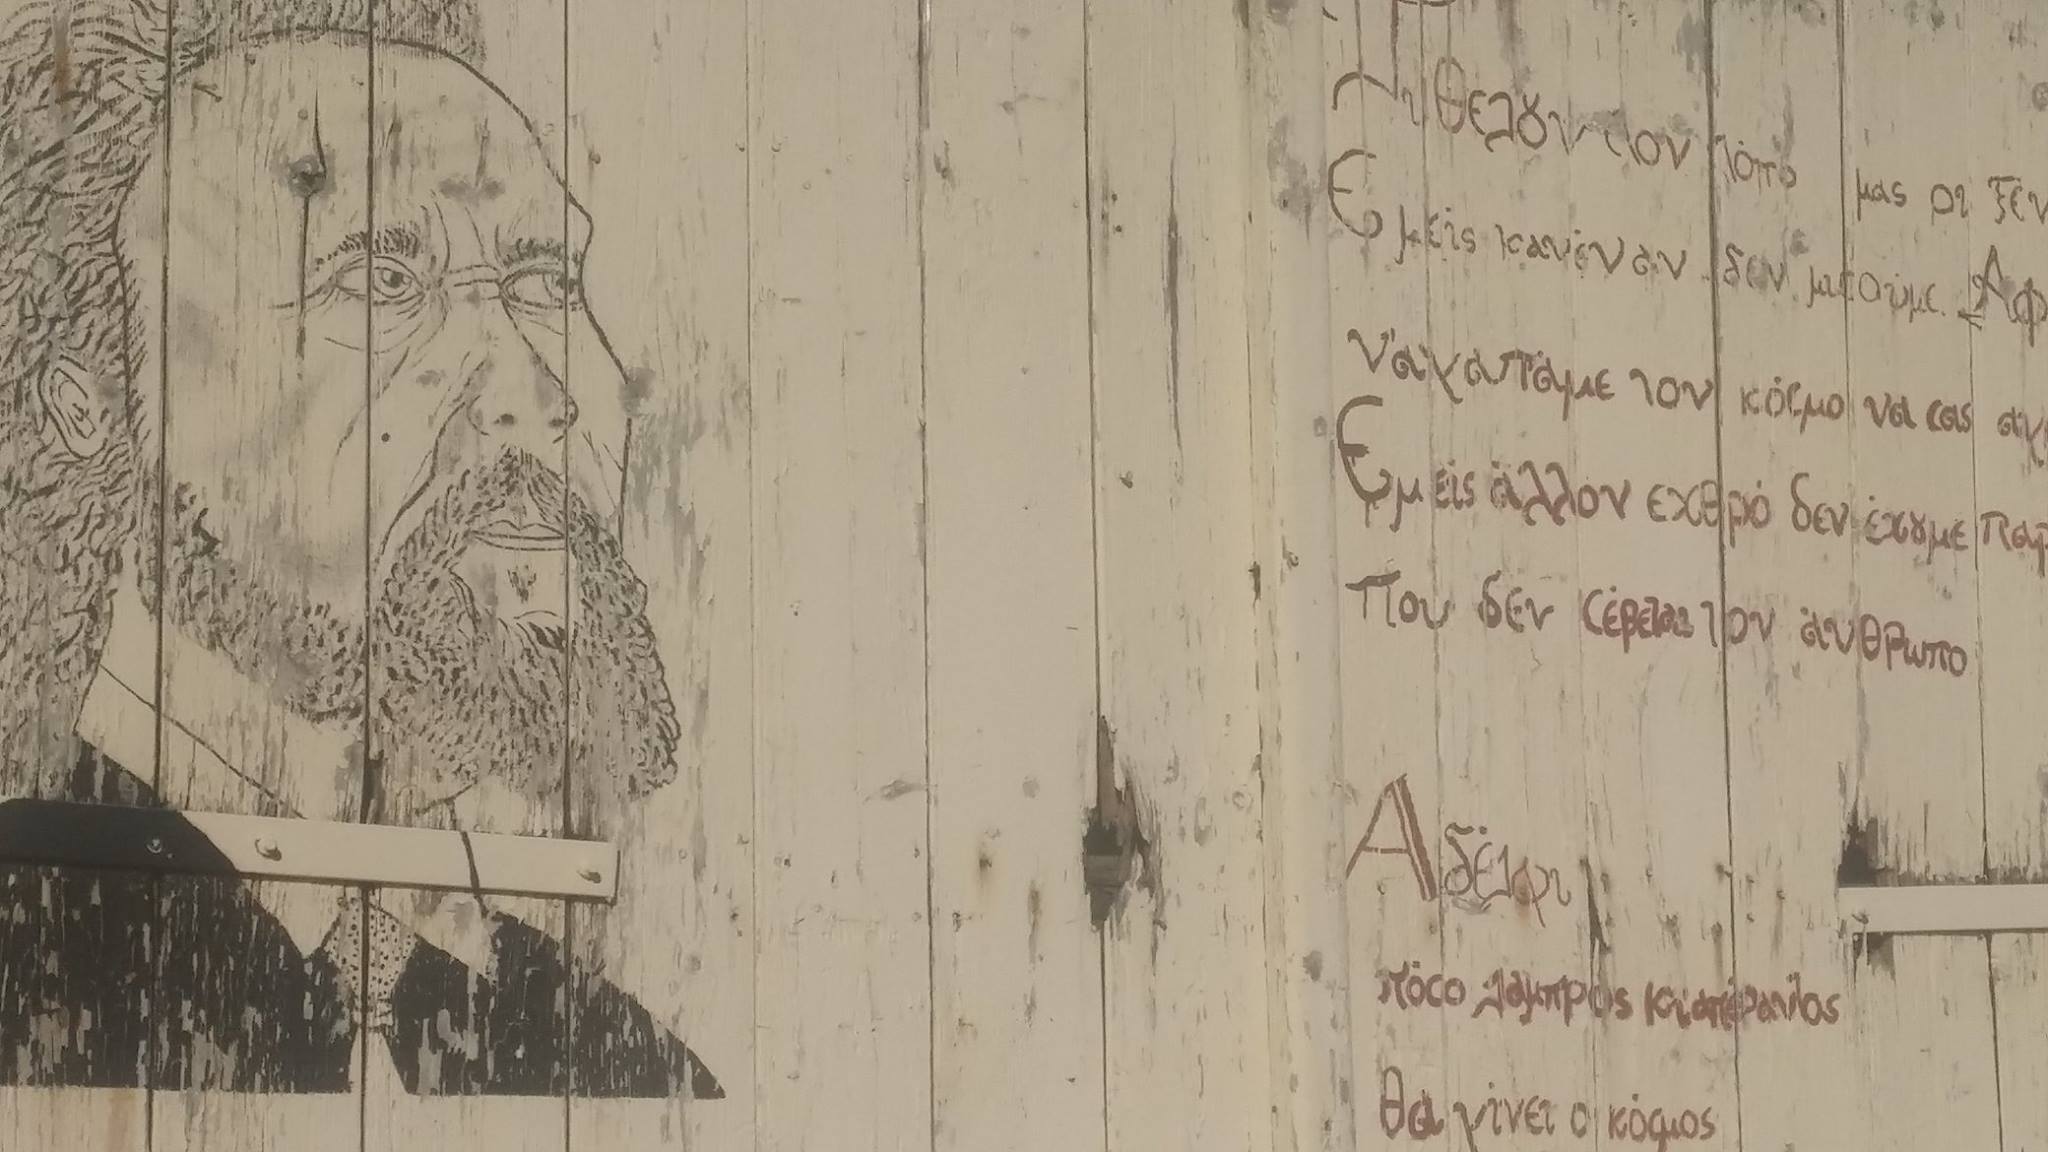 Τι θέλουν τον τόπο μας οι ξέν
Εμείς κανέναν δεν μισούμε. Αφ
ν' αγαπάμε τον κόσμο να σας αγ
Εμείς άλλον εχθρό δεν έχουμε παρ
Που δεν σέβεται τον άνθρωπο
Αδέλφι
πόσο λαμπρός κι απέραντος
θα γίνει ο κόσμος